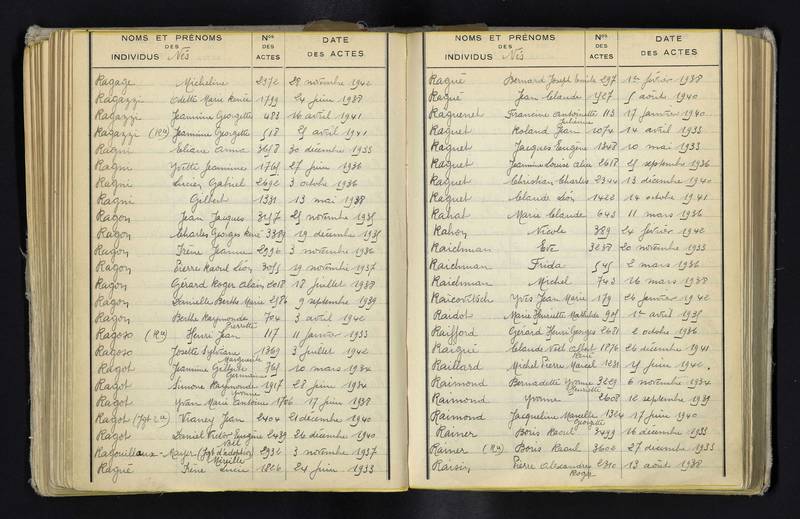 NOMS ET PRÉNOMS DES INDIVIDUS Nés Nos DES ACTES DATE DES ACTES
Ragage Micheline 2372 28 novembre 1942
Ragazzi Odette Marie Renée 1739 24 juin 1938
Ragazzi Jeannine Georgette 483 16 avril 1941
Ragazzi (Ru) Jeannine Georgette 518 25 avril 1941
Ragni Eliane Anna 3658 30 décembre 1933
Ragni Yvette Jeannine 1765 27 juin 1936
Ragni Lucien Gabriel 2692 3 octobre 1936
Ragni Gilbert 1331 13 mai 1938
Ragon Jean Jacques 3157 25 novembre 1935
Ragon Charles Georges René 3389 19 décembre 1935
Ragon Irène Jeanne 2996 3 novembre 1936
Ragon Pierre Raoul Léon 3055 19 novembre 1937
Ragon Gérard Roger Alain 2018 18 juillet 1938
Ragon Danielle Berthe Marie 2186 9 septembre 1939
Ragon Berthe Raymonde Pierrette 704 3 avril 1942
Ragoso (Ru) Henri Jean 117 11 janvier 1933
Ragoso Josette Sylviane Marguerite 1369 3 juillet 1942
Ragot Jeannine Gilberte Germaine 765 10 mars 1934
Ragot Simone Raymonde Yvonne 1917 28 juin 1934
Ragot Yvan Marie Antoine 1706 17 juin 1938
Ragot Vianey Jean 2404 21 décembre 1940
Ragot Daniel Victor Eugène Noël 2439 26 décembre 1940
Ragouillaux - Mayer (Jgt d'adoption) Mireille 2936 3 novembre 1937
Ragué Irène Lucie 1826 24 juin 1933
NOMS ET PRÉNOMS DES INDIVIDUS Nés Nos DES ACTES DATE DES ACTES
Ragué Bernard Joseph Emile 297 1er février 1938
Ragué Jean Claude 1527 5 août 1940
Raguenet Francine Antoinette Julienne 113 17 janvier 1940
Raguet Roland Jean 1074 14 avril 1933
Raguet Jacques Eugène 1348 10 mai 1933
Raguet Jeannine Louise Alice 2618 25 septembre 1936
Raguet Christian Charles 2344 13 décembre 1940
Raguet Claude Léon 1422 14 octobre 1941
Rahat Marie Claude 643 11 mars 1936
Rahon Nicole 389 24 février 1942
Raichman Eve 3238 20 novembre 1933
Raichman Frida 545 2 mars 1936
Raichman Michel 743 16 mars 1938
Raicovitsch Yves Jean Marie 179 26 janvier 1942
Raidot Marie Henriette Mathilde 905 1er avril 1938
Raifford Gérard Henri Georges 2681 2 octobre 1936
Raigué Claude Noël Albert René 1876 26 décembre 1941
Raillard Michel Pierre Marcel 1231 15 juin 1940.
Raimond Bernadette Yvonne Henriette 3229 6 novembre 1934
Raimond Yvonne 2608 12 septembre 1939
Raimond Jacqueline Marcelle Georgette 1324 17 juin 1940
Rainer Boris Raoul 3499 16 décembre 1933
Rainer (Ru) Boris Raoul 3608 27 décembre 1933
Raisin Pierre Alexandre Roger 2310 13 août 1938